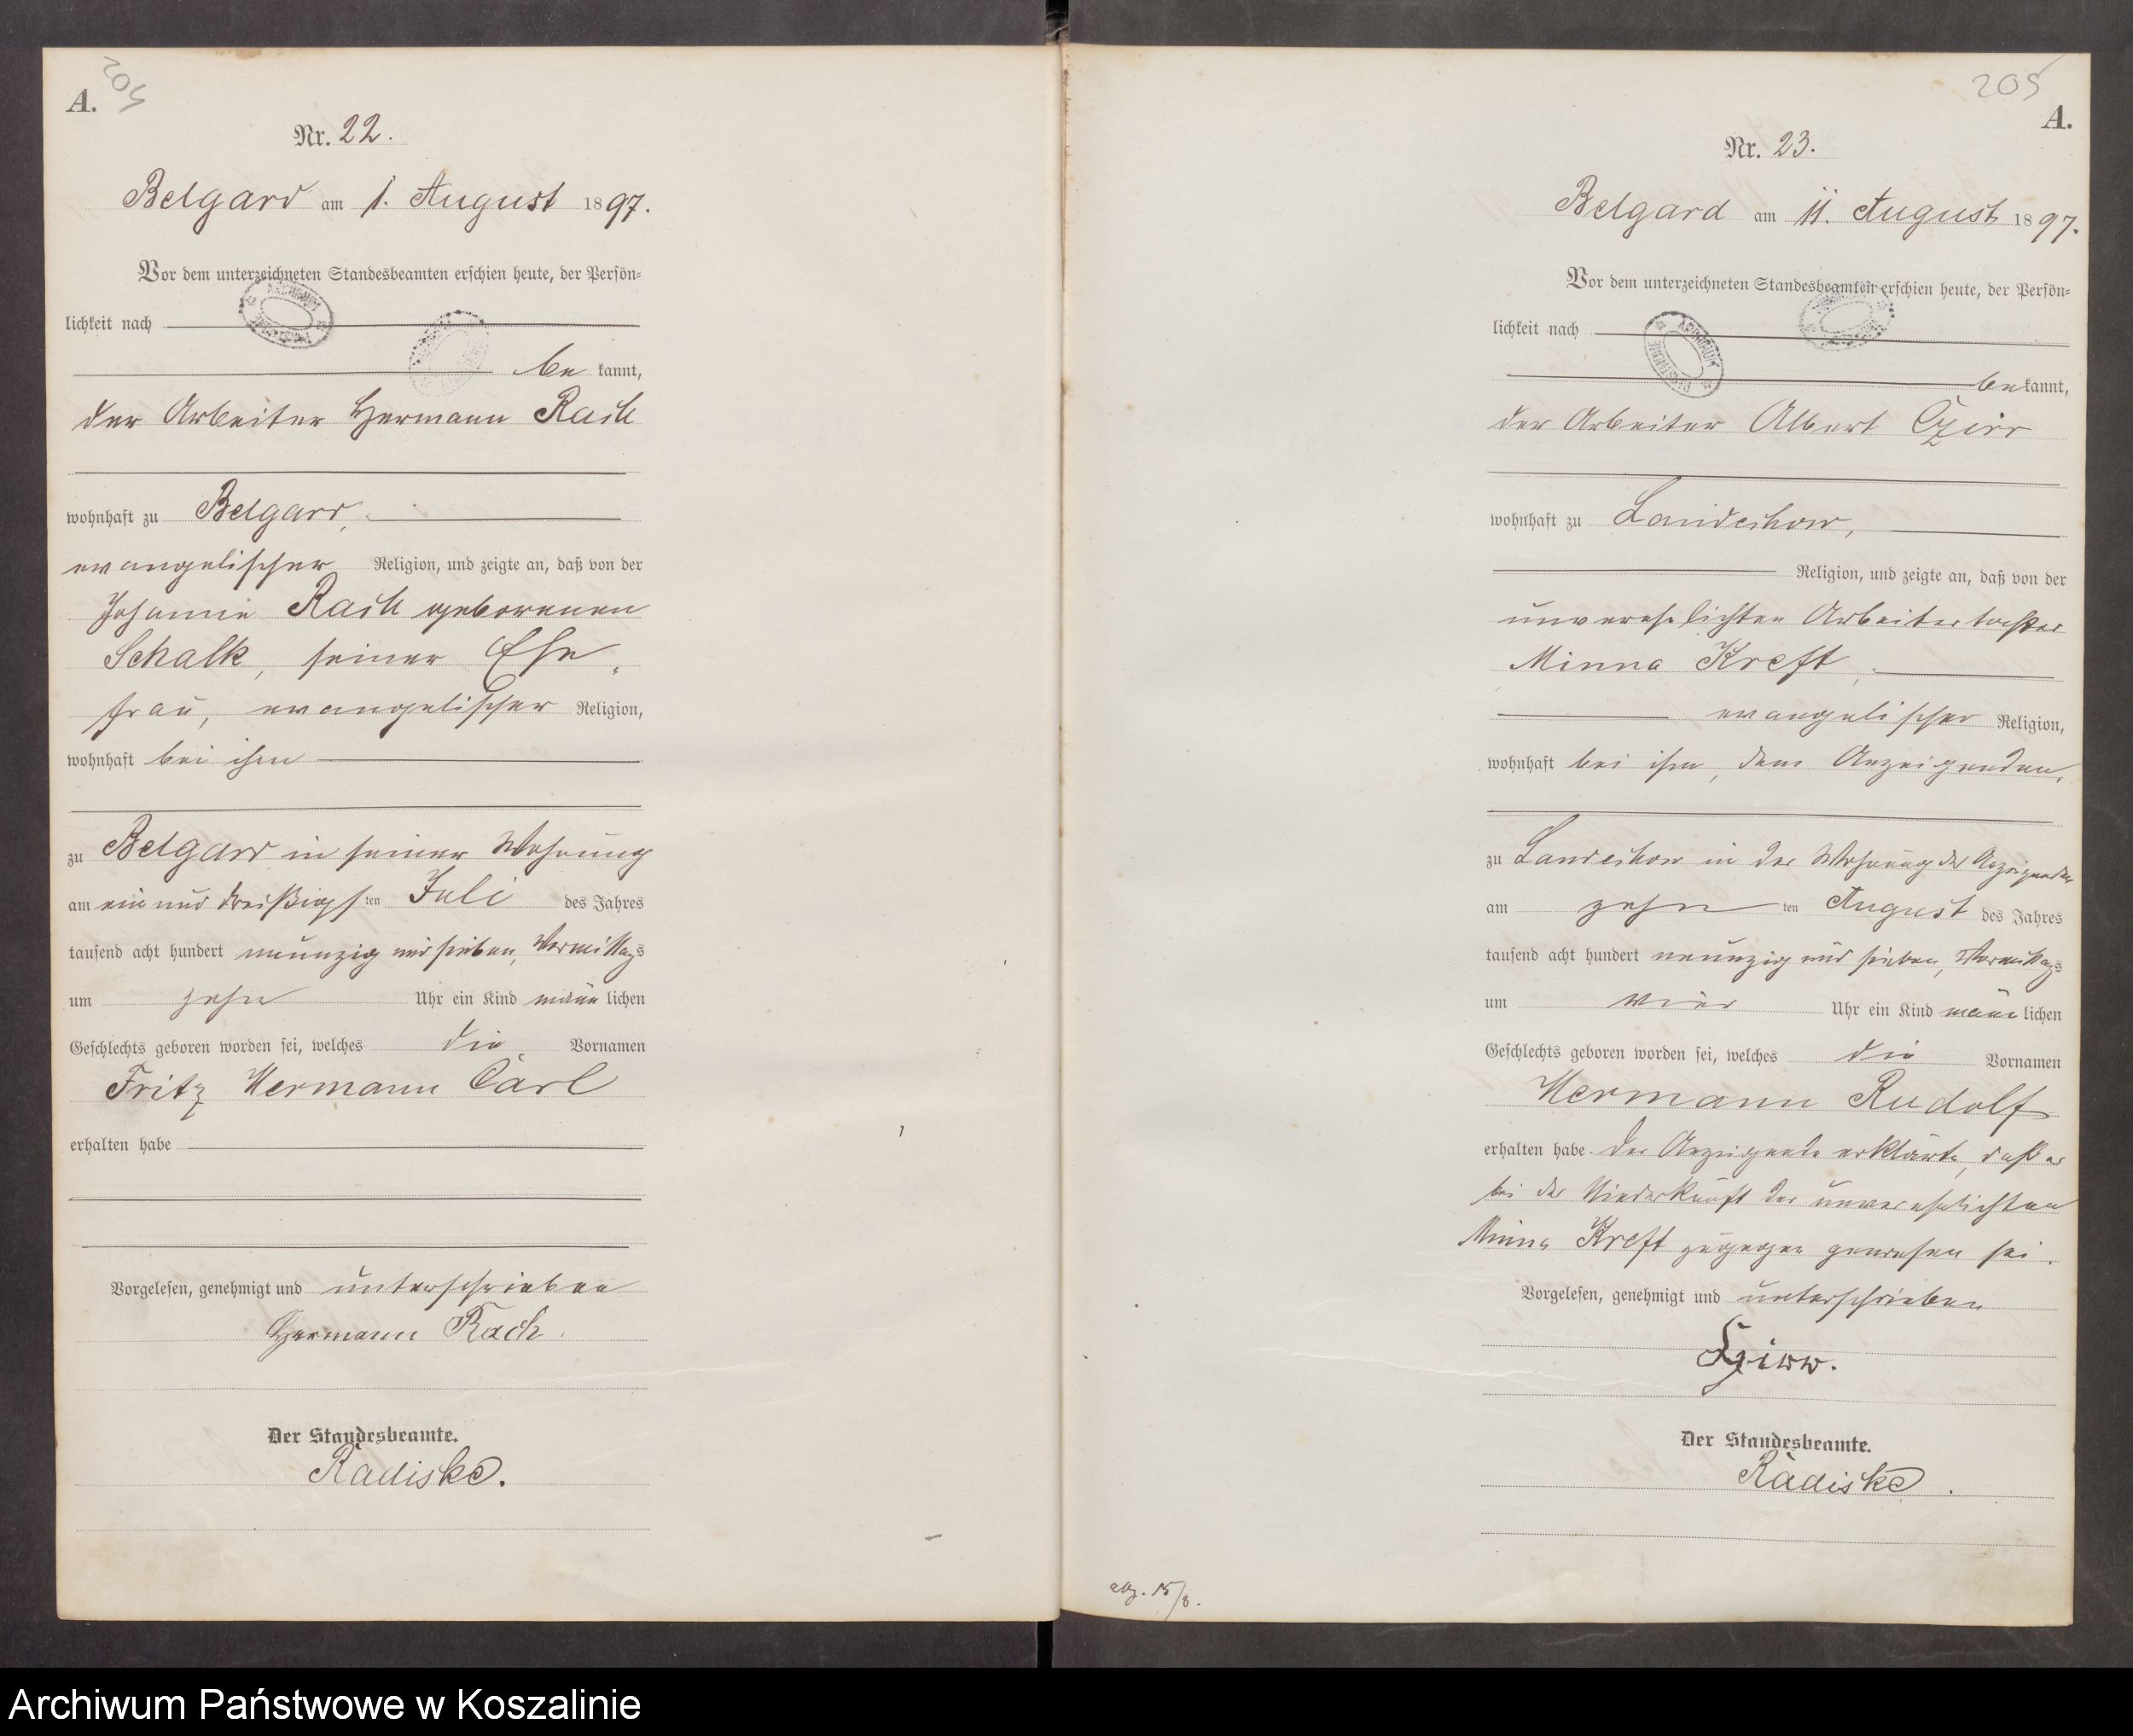 204
A.
Nr. 22.
Belgard am 1. August 1897.
Vor dem unterzeichneten Standesbeamten erschien heute, der Persön-
lichkeit nach
be kannt,
der Arbeiter Hermann Rach
wohnhaft zu Belgard,
evangelischer Religion, und zeigte an, daß von der
Johanne Rach geborenen
Schalk, seiner Ehe-
frau, evangelischer Religion,
wohnhaft bei ihm
zu Belgard in seiner Wohnung
am ein und dreißigsten Juli des Jahres
tausend acht hundert neunzig und sieben, Vormittags
um zehn Uhr ein Kind männlichen
Geschlechts geboren worden sei, welches die Vornamen
Fritz Hermann Carl
erhalten habe
Vorgelesen, genehmigt und unterschrieben
Hermann Rach.
Der Standesbeamte.
Radiske.
205
A.
Nr. 23.
Belgard am 11. August 1897.
Vor dem unterzeichneten Standesbeamten erschien heute, der Persön-
lichkeit nach
bekannt,
der Arbeiter Albert Czirr
wohnhaft zu Landechow,
Religion, und zeigte an, daß von der
unverehelichten Arbeitertochter
Minna Kreft,
evangelischer Religion,
wohnhaft bei ihm, dem Anzeigenden,
zu Landechow in der Wohnung des Anzeigenden
am zehnten August des Jahres
tausend acht hundert neunzig und sieben, Vormittags
um vier Uhr ein Kind männlichen
Geschlechts geboren worden sei, welches die Vornamen
Hermann Rudolf
erhalten habe. Der Anzeigende erklärte, daß er
bei der Niederkunft der unverehelichten
Minna Kreft zugegen gewesen sei.
Vorgelesen, genehmigt und unterschrieben
Czirr.
Der Standesbeamte.
Radiske.
15/8.
Archiwum Państwowe w Koszalinie